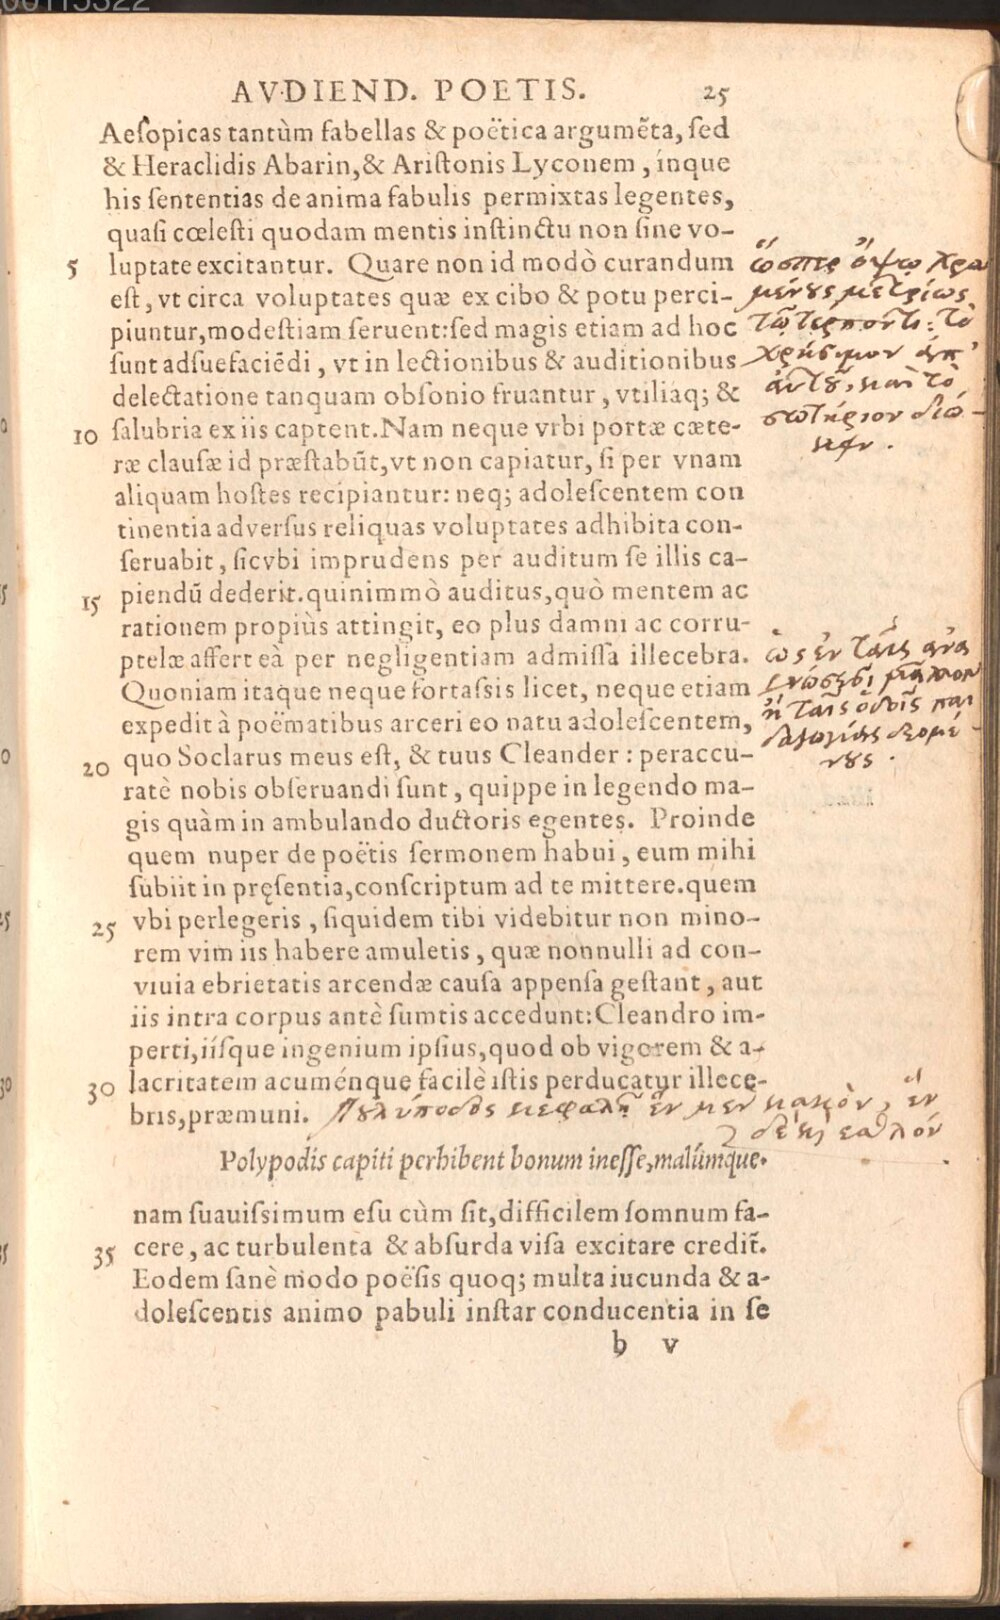 AVDIEND. POETIS. 25
Aeſopicas tantùm fabellas & poëtica argumẽta, ſed
& Heraclidis Abarin, & Ariſtonis Lyconem, ínque
his ſententias de anima fabulis permixtas legentes,
quaſi cœleſti quodam mentis inſtinctu non ſine vo-
5 luptate excitantur. Quare non id modò curandum
eſt, vt circa voluptates quæ ex cibo & potu perci-
piuntur, modeſtiam ſeruent: ſed magis etiam ad hoc
ſunt adſuefaciẽdi, vt in lectionibus & auditionibus
delectatione tanquam obſonio fruantur, vtiliáq; &
10 ſalubria ex iis captent. Nam neque vrbi portæ cæte-
ræ clauſæ id præſtabũt, vt non capiatur, ſi per vnam
aliquam hoſtes recipiantur: neq; adoleſcentem con
tinentia adverſus reliquas voluptates adhibita con-
ſeruabit, ſicvbi imprudens per auditum ſe illis ca-
15 piendũ dederit. quinimmò auditus, quò mentem ac
rationem propiùs attingit, eo plus damni ac corru-
ptelæ affert eà per negligentiam admiſſa illecebra.
Quoniam itaque neque fortaſsis licet, neque etiam
expedit à poëmatibus arceri eo natu adoleſcentem,
20 quo Soclarus meus eſt, & tuus Cleander: peraccu-
ratè nobis obſeruandi ſunt, quippe in legendo ma-
gis quàm in ambulando ductoris egentes. Proinde
quem nuper de poëtis ſermonem habui, eum mihi
ſubiit in pręſentia, conſcriptum ad te mittere. quem
25 vbi perlegeris, ſiquidem tibi videbitur non mino-
rem vim iis habere amuletis, quæ nonnulli ad con-
viuia ebrietatis arcendæ cauſa appenſa geſtant, aut
iis intra corpus antè ſumtis accedunt: Cleandro im-
perti, iíſque ingenium ipſius, quod ob vigorem & a-
30 lacritatem acuménque facilè iſtis perducatur illece-
bris, præmuni. Πουλύποδος κεφαλῇ ἓν μὲν κακὸν, ἓν
δέ κ̀ ἐσθλόν
Polypodis capiti perhibent bonum ineſſe, malúmque.
nam ſuauiſsimum eſu cùm ſit, difficilem ſomnum fa-
35 cere, ac turbulenta & abſurda viſa excitare credit̃.
Eodem ſanè modo poëſis quoq; multa iucunda & a-
doleſcentis animo pabuli inſtar conducentia in ſe
b v
ὥσπερ ὄψῳ χρω
μένους μετρίως
τῷ τέρποντι: τὸ
χρήσιμον ἀπ'
αὐτοῦ, καὶ τὸ
σωτήριον διώ-
κειν.
ὡς ἐν ταῖς ἀνα
γνώσεσι μᾶλλον
ἢ ταῖς ὁδοῖς παι
δαγωγίας δεομέ-
νους.